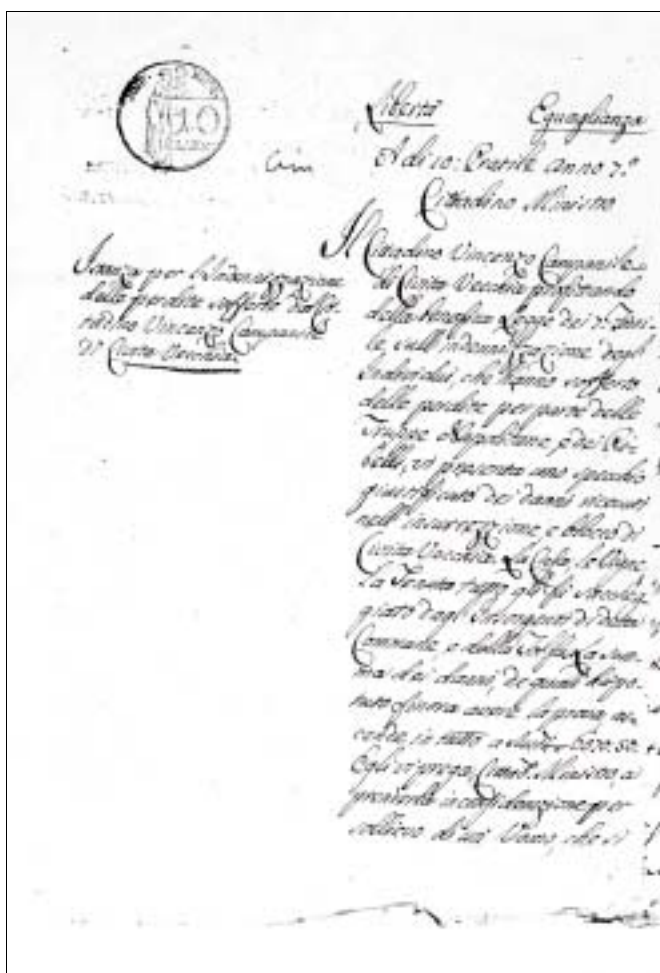 Libertà Eguaglianza
A di 10: Pratile anno 7.º
Cittadino Ministro
Istanza per l'Indennizzazione
delle perdite sofferte dal Cit-
tadino Vincenzo Campanile
di Civita Vecchia.
Il Cittadino Vincenzo Campanile
di Civita Vecchia profittando
della benefica Legge dei 7.
le, sull'indennizzazione degli
Individui, che hanno sofferto
delle perdite per parte delle
Truppe Napolitane, e dei Ri-
belli, vi presenta uno specchio
giustificato dei danni
nell'insurrezione, e blocco di
Civita Vecchia. La Casa, le Vigne,
La Tenuta tutto gli fù saccheg-
giato dagli Insorgenti di detta
Commune e della Tolfa. La som-
ma dei danni, de quali à po-
tuto finora avere la prova, as-
cende in tutto a
Egli vi prega, Ministro, a
prenderlo in considerazione per
sollievo di un Uomo, che si